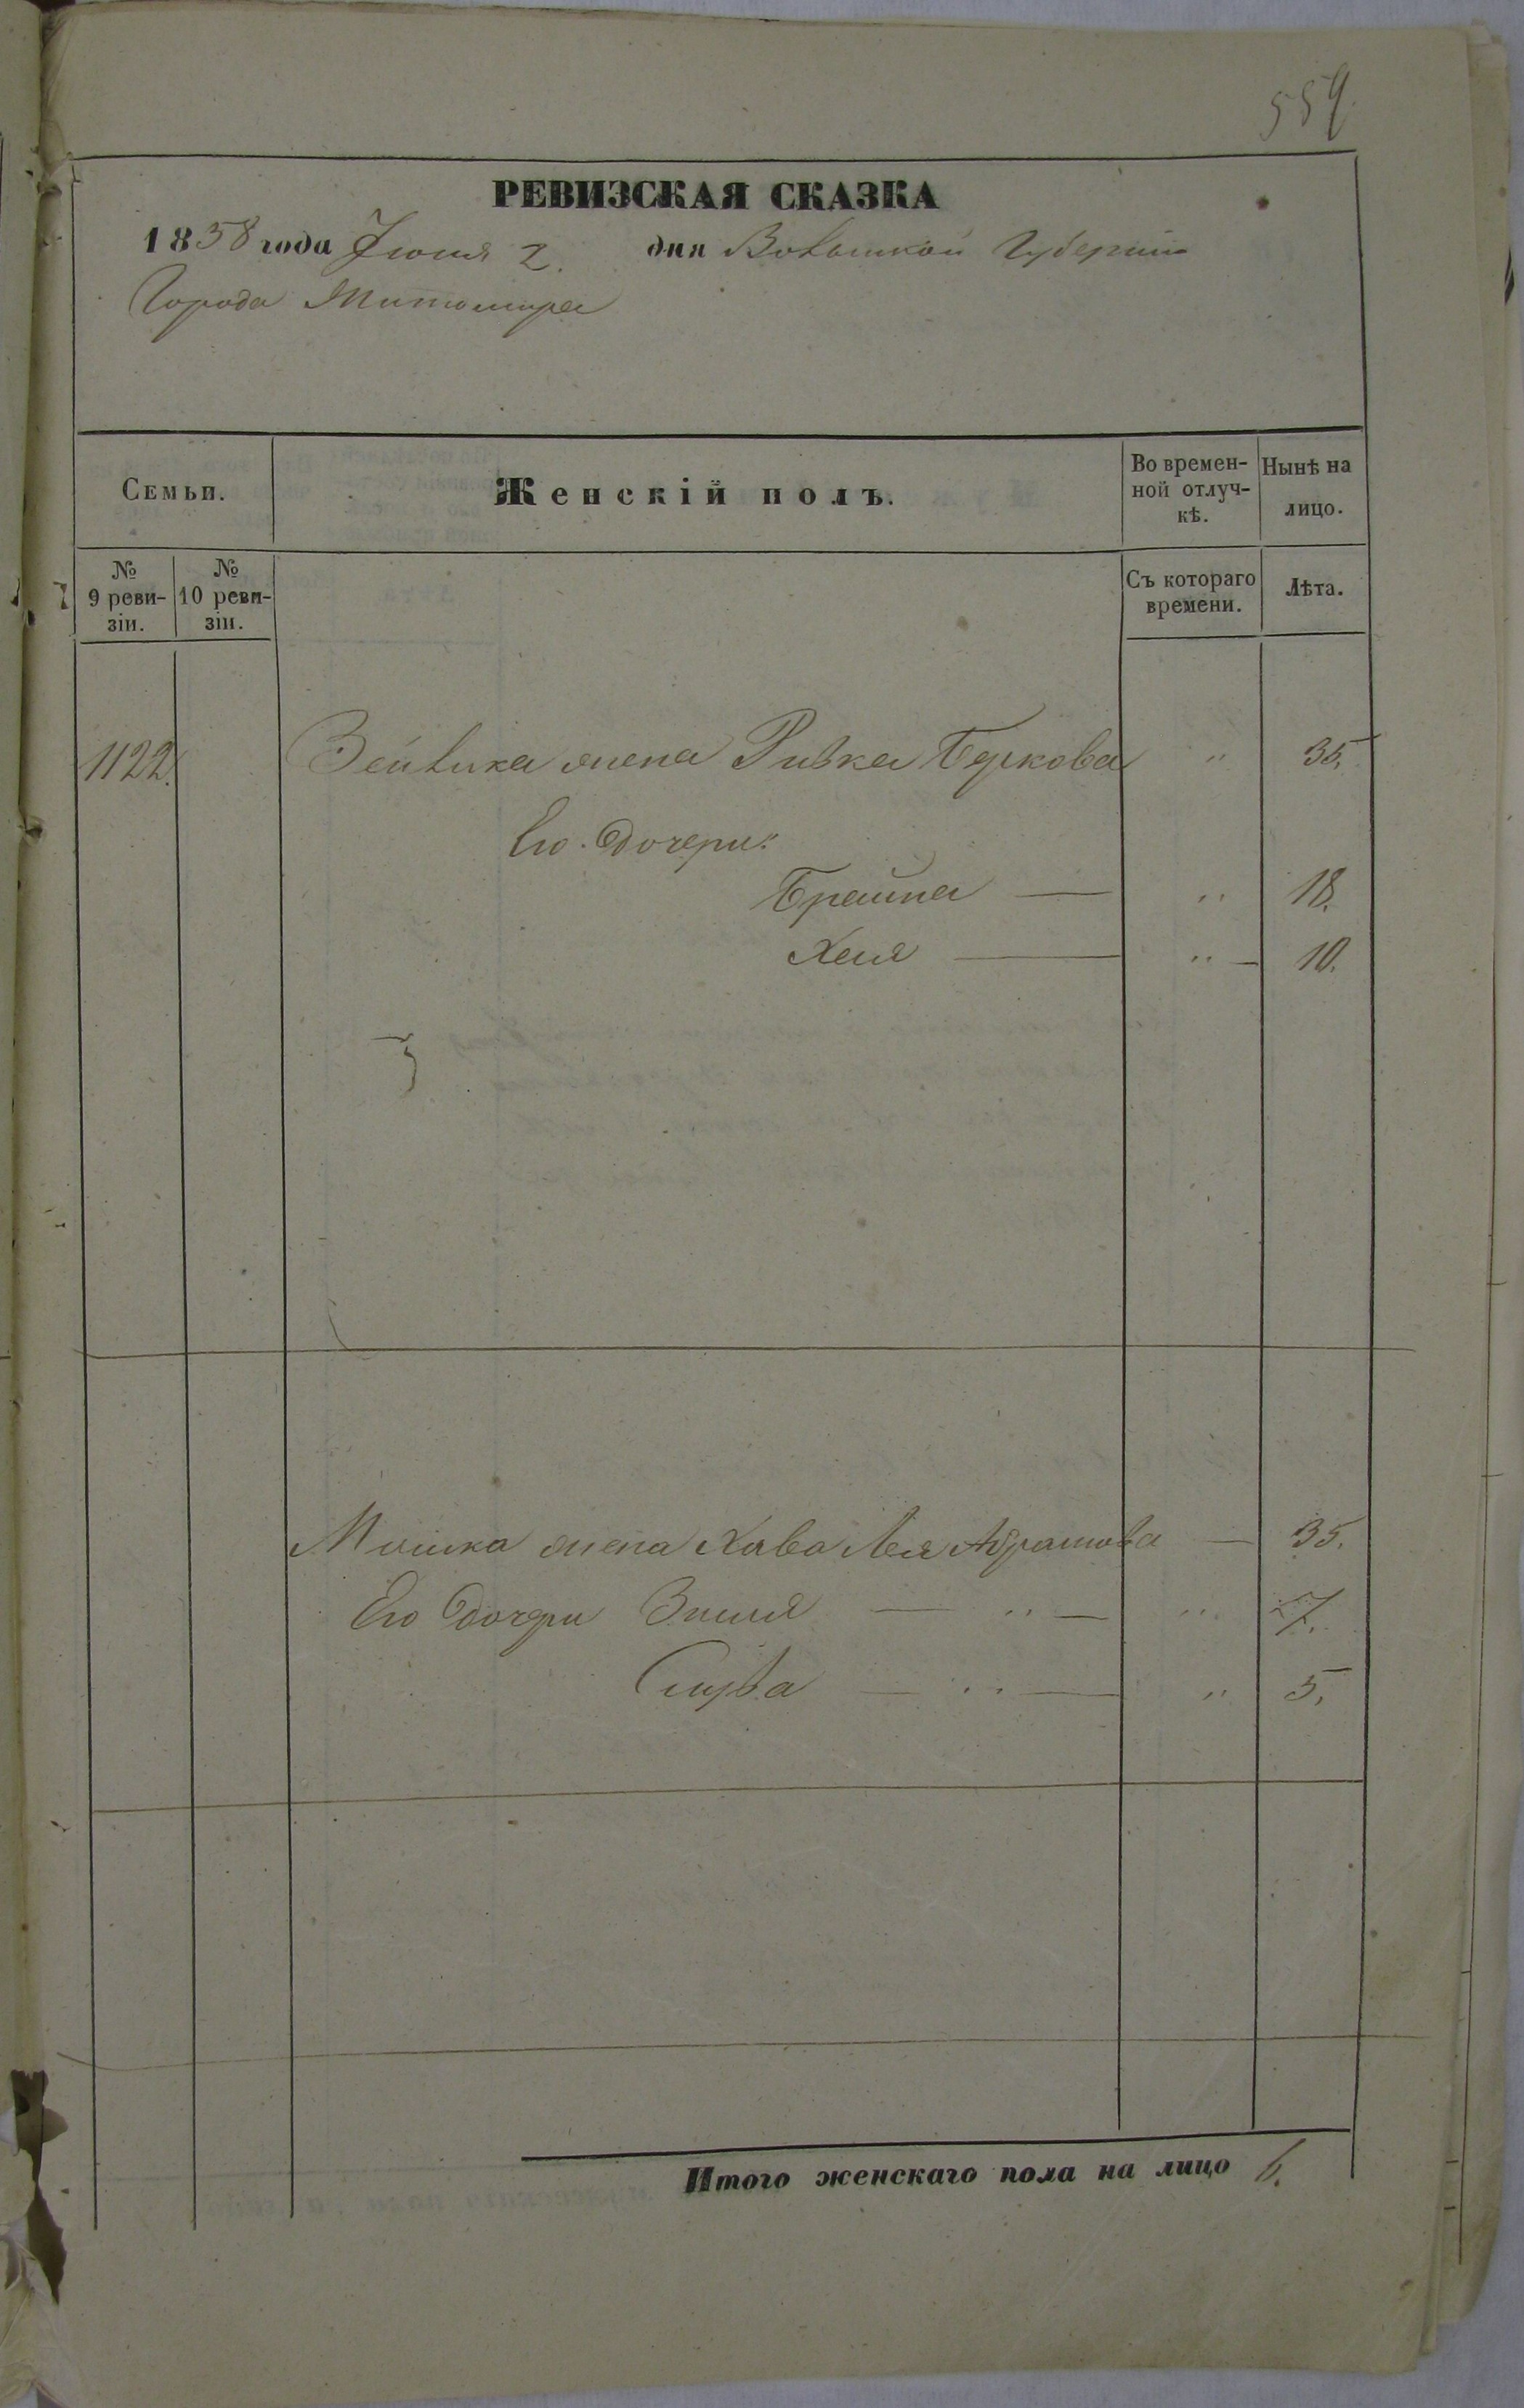 559.
РЕВИЗСКАЯ СКАЗКА
1858 года Іюня 2. дня Волынской Губерніи
Города Житомира
Семьи.
Женскій полъ.
Во времен-
ной отлуч-
кѣ.
Нынѣ на
лицо.
№
9 реви-
зіи.
№
10 реви-
зіи.
Съ котораго
времени.
Лѣта.
1122. Зейлика жена Ривка Беркова " 35.
Его дочери:
Брайна — " 18.
Хая — " — 10.
3
Мошка жена Хава Лея Абрамова — 35.
Его дочери Зисля — " — " 7.
Сурва — " — " 5.
Итого женскаго пола на лицо 6.